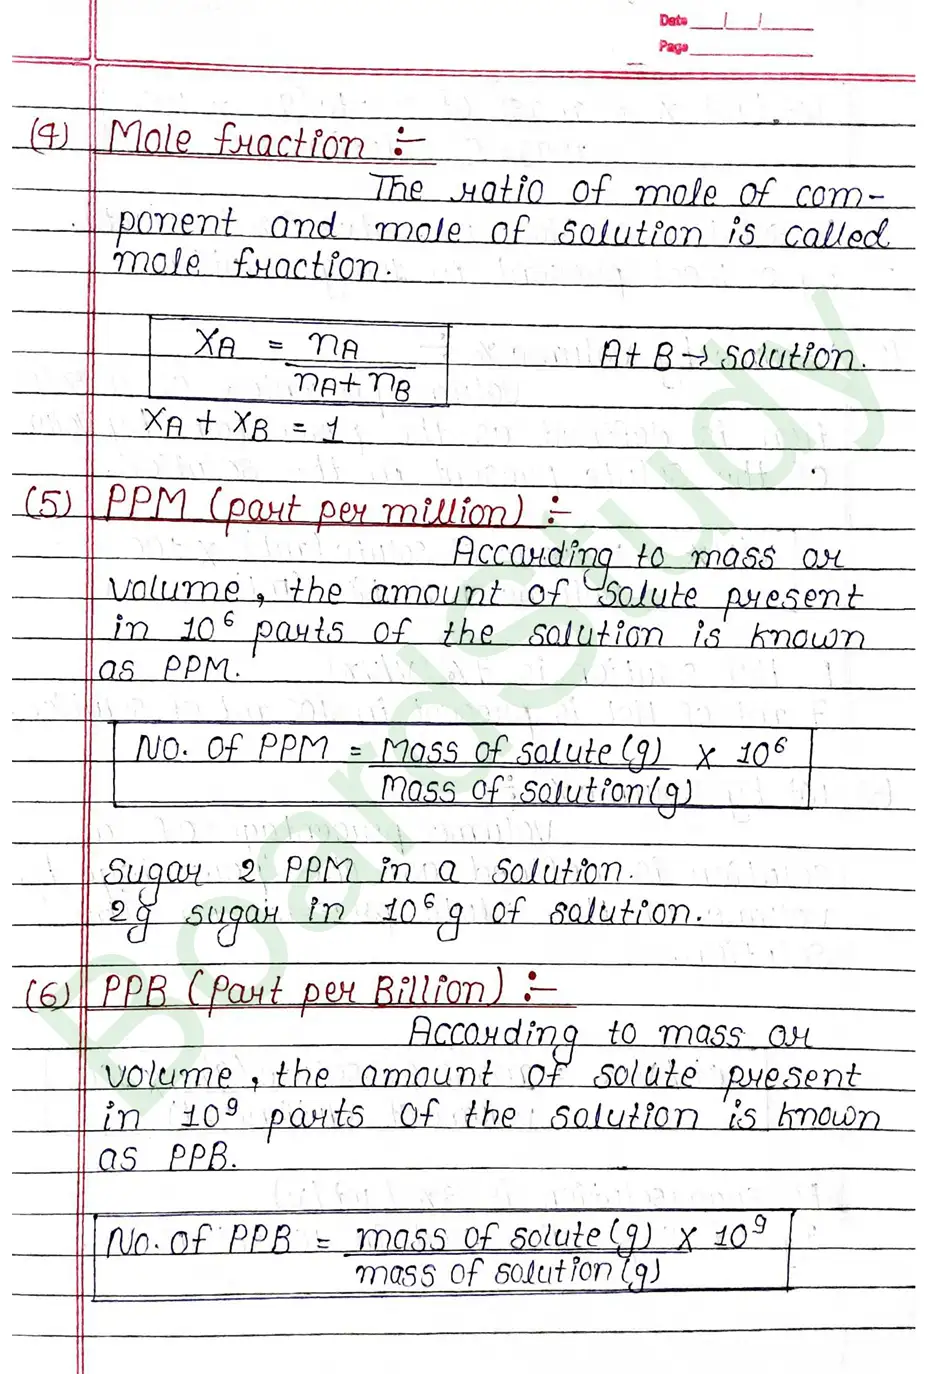 Date __/__/____
Page ________
(4) Mole fraction :-
The ratio of mole of com-
ponent and mole of solution is called
mole fraction.
XA = nA / nA + nB
A + B → solution.
XA + XB = 1
(5) PPM (part per million) :-
According to mass or
volume, the amount of solute present
in 10⁶ parts of the solution is known
as PPM.
No. of PPM = Mass of solute (g) / Mass of solution (g) × 10⁶
Sugar 2 PPM in a solution.
2g sugar in 10⁶ g of solution.
(6) PPB (Part per Billion) :-
According to mass or
volume, the amount of solute present
in 10⁹ parts of the solution is known
as PPB.
No. of PPB = mass of solute (g) / mass of solution (g) × 10⁹
BoardStudy